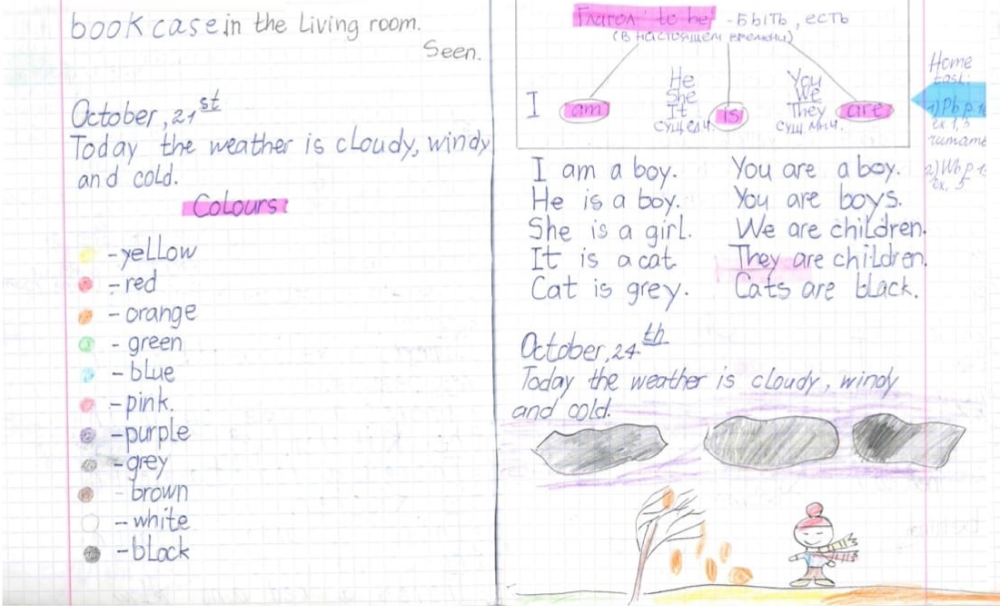 book case in the Living room.
Seen.
October, 21st
Today the weather is cloudy, windy
and cold.
Colours
- yellow
- red
- orange
- green
- blue
- pink.
- purple
- grey
- brown
- white
- black
Глагол to be - быть, есть
(в настоящем времени)
I am
He
She
It
сущ ед.ч.
is
You
We
They
сущ мн.ч.
are
I am a boy.
He is a boy.
She is a girl.
It is a cat
Cat is grey.
You are a boy.
You are boys.
We are children.
They are children.
Cats are black.
Home
task:
1) Pb p.
ex. 1, 3
читать
2) Wb p.
ex. 5
October, 24th
Today the weather is cloudy, windy
and cold.